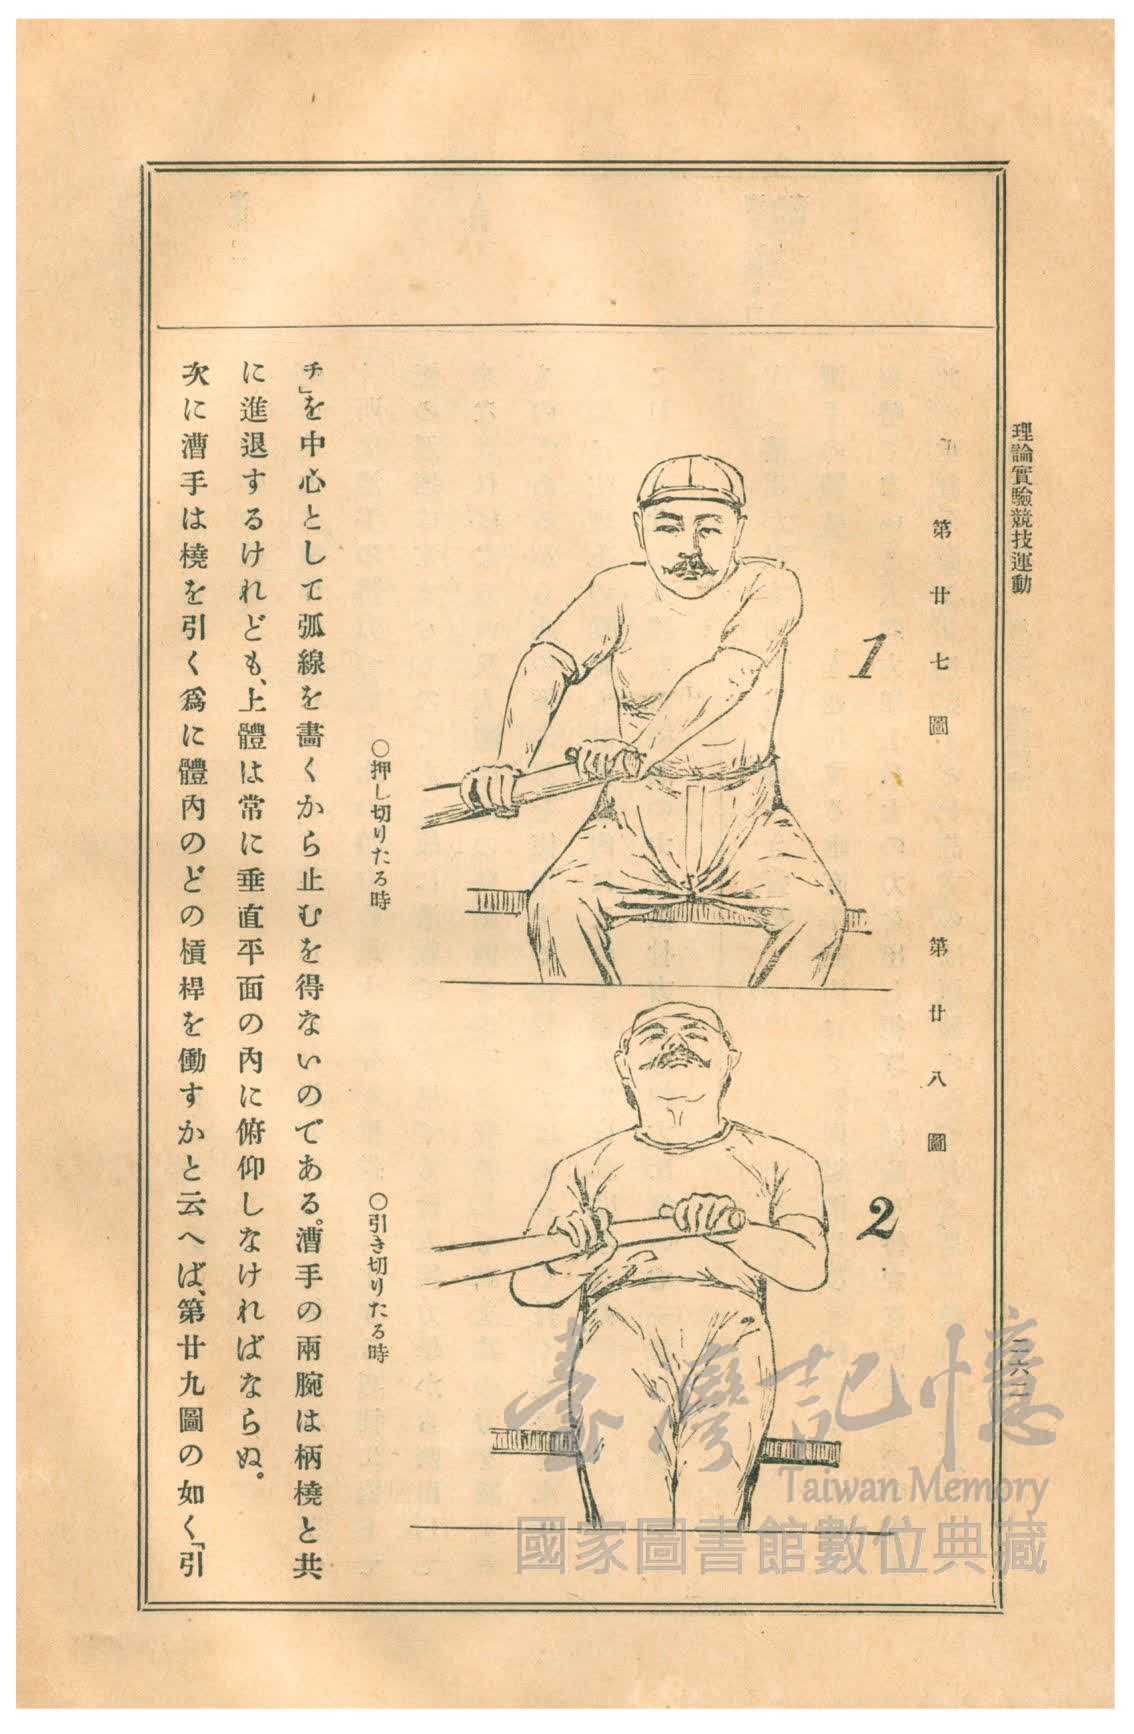 理論實驗競技運動
第廿七圖
第廿八圖
1
2
○押し切りたる時
○引き切りたる時
チ」を中心として弧線を畵くから止むを得ないのである。漕手の兩腕は柄橈と共
に進退するけれども、上體は常に垂直平面の內に俯仰しなければならぬ。
次に漕手は橈を引く爲に體內のどの槓桿を働すかと云へば、第廿九圖の如く「引
臺灣記憶
Taiwan Memory
國家圖書館數位典藏